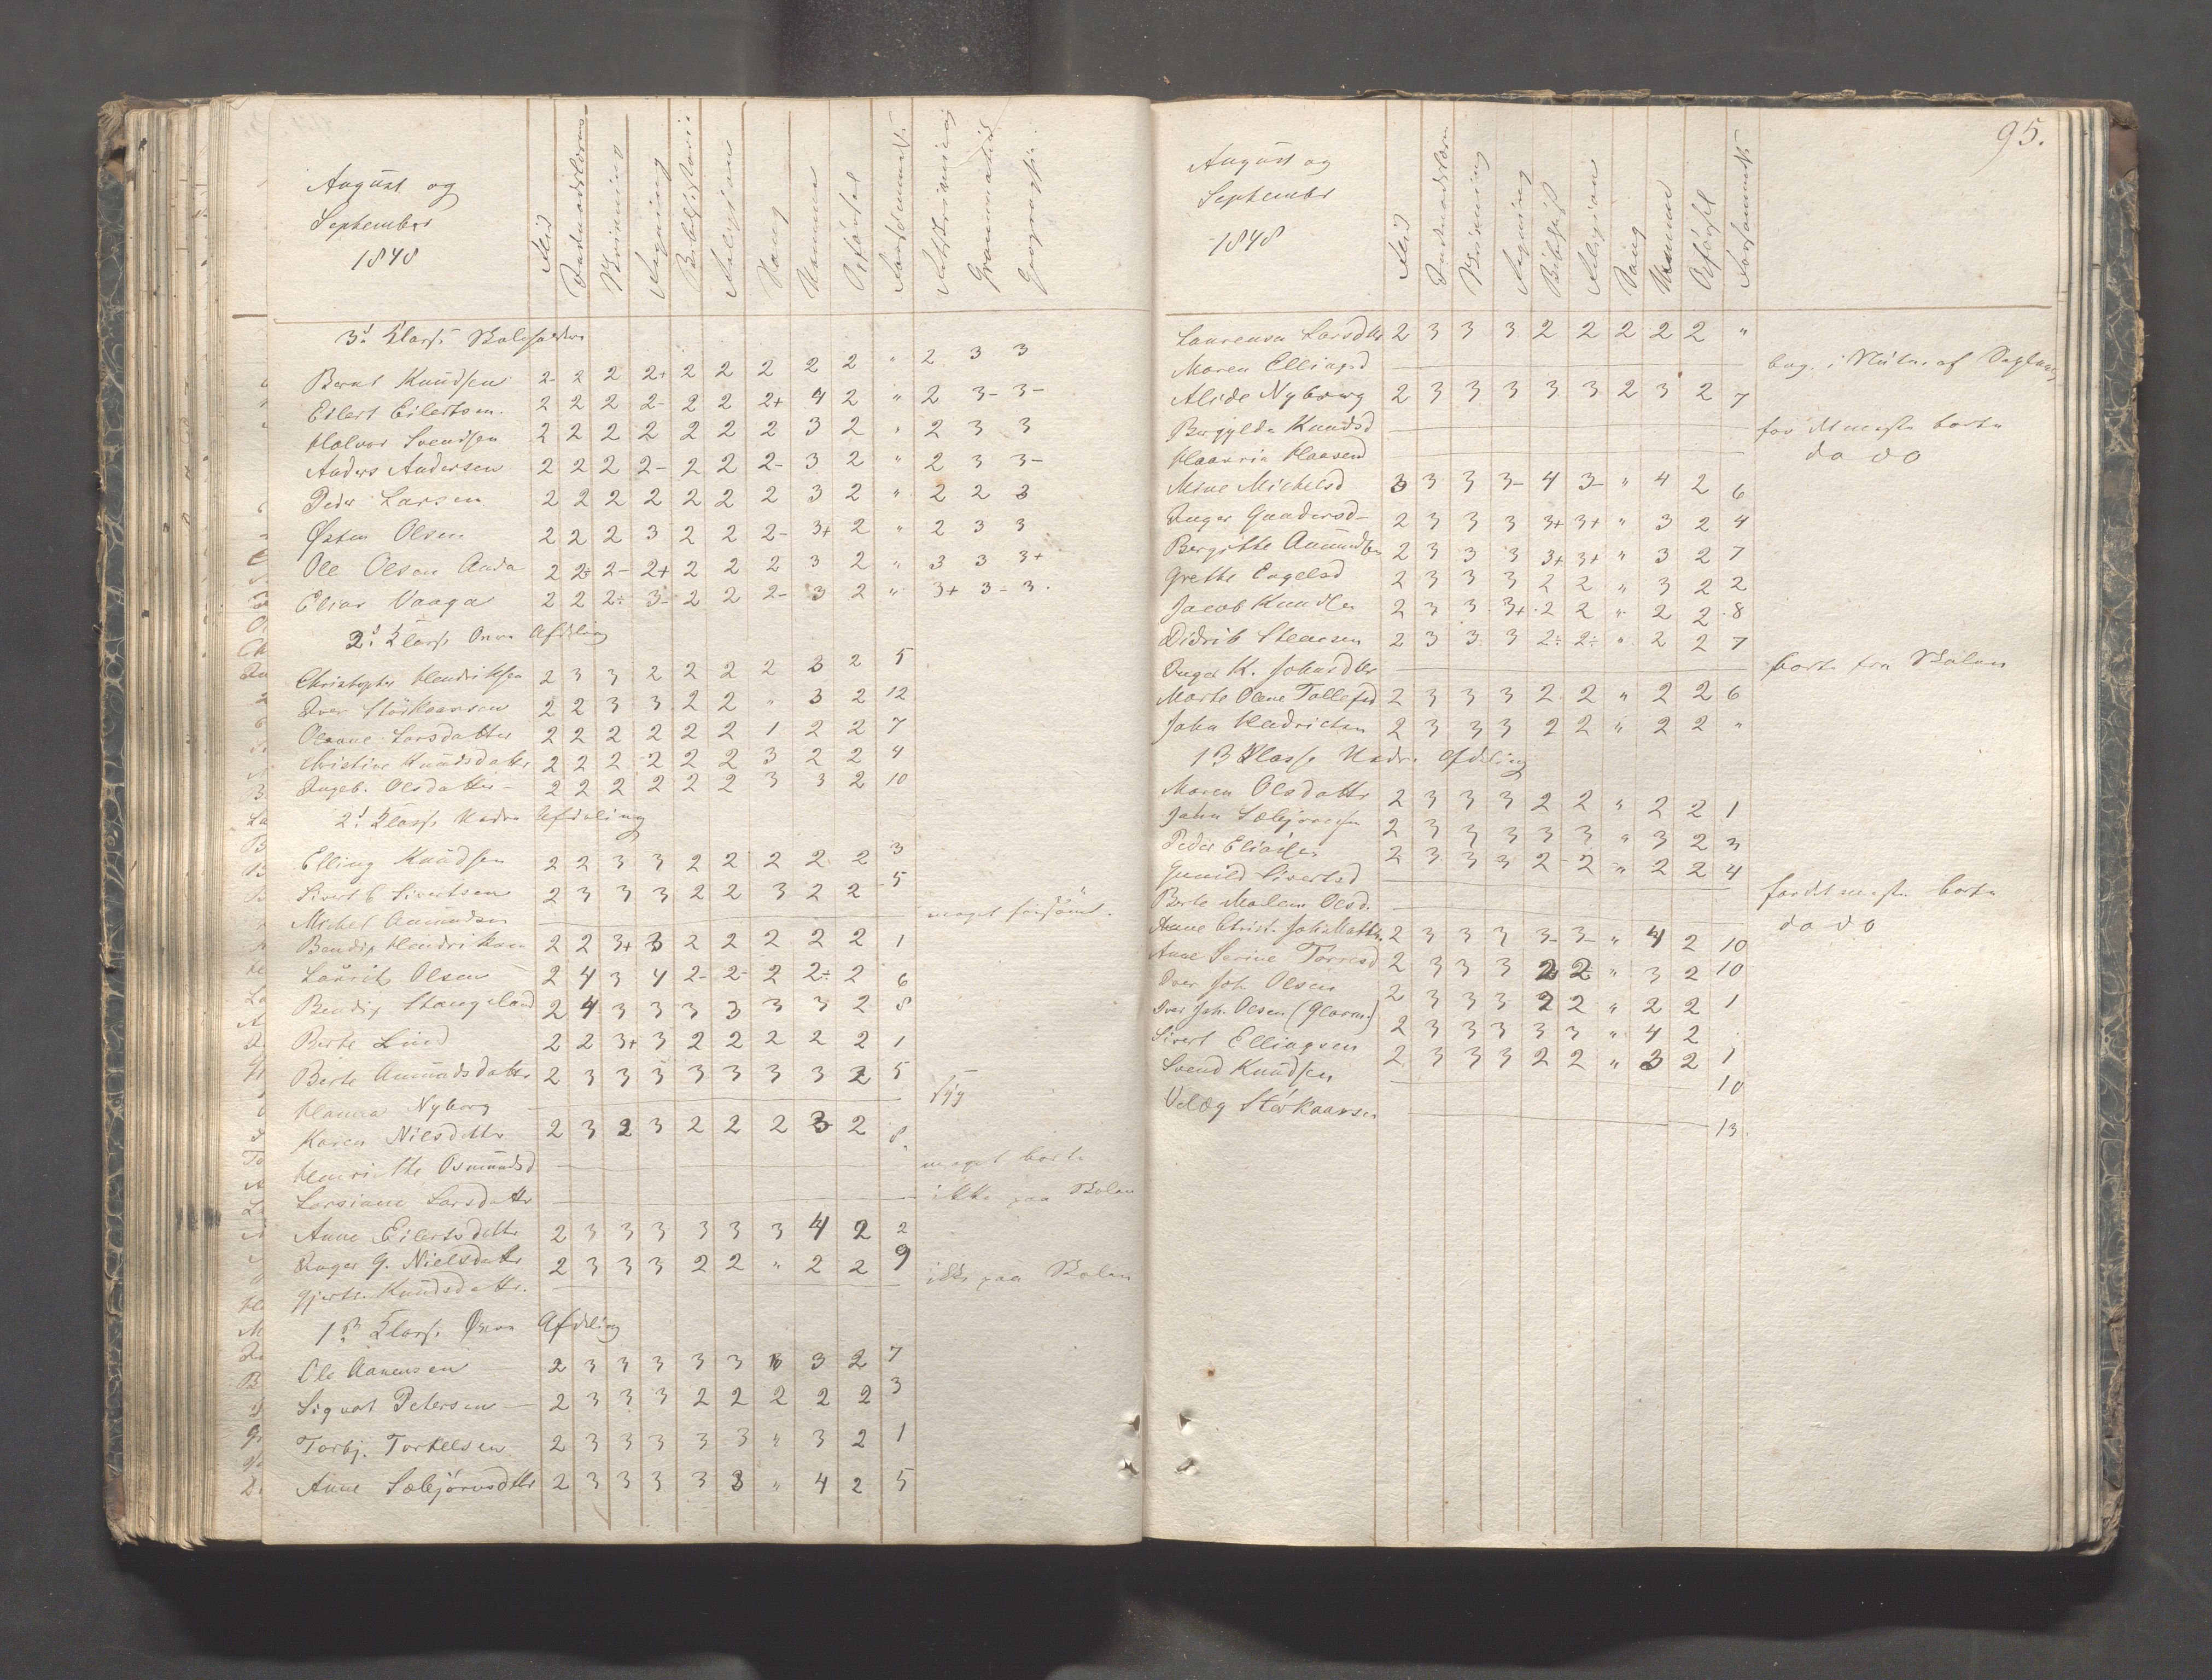 August og
September
1848
Flid
Indenadslæsn
Skrivning
Regning
Bibelhistorie
Religion
Sang
Evne
Opførsel
Forsømmels.
Retskrivning
Grammatik
Geographi.
3d Klasse
Bernt Knudsen 2- 2 2 2+ 2 2 2 2 2 " 2 3 3
Eilert Eilertsen. 2 2 2 2- 2 2 2+ 4 2 " 2 3- 3-
Halvor Svendsen 2 2 2 2 2 2 2 3 2 " 2 3 3
Anders Andersen 2 2 2 2- 2 2 2- 3 2 " 2 3 3-
Peder Larsen 2 2 2 2 2 2 2 3 2 " 2 2 3
Østen Olsen 2 2 2 3 2 2 2- 3+ 2 " 2 3 3
Ole Olsen Anda 2 2÷ 2- 2+ 2 2 2 3 2 " 3 3 3+
Elias Vaaga 2 2 2÷ 3- 2 2 2- 3 2 " 3+ 3- 3.
2d Klasse Øvre Afdeling
Christopher Hendriksen 2 3 3 2 2 2 2 3 2 5
Iver Størkaarsen 2 2 3 3 2 2 " 3 2 12
Oleane Larsdatter 2 2 2 2 2 2 1 2 2 7
Christine Knudsdatter 2 2 2 2 2 2 3 2 2 4
Ingeb. Olsdatter - 2 2 2 2 2 2 3 3 2 10
2d Klasse Nedre Afdeling
Elling Knudsen 2 2 3 3 2 2 2 2 2 3
Sivert E Sivertsen 2 3 3 3 2 2 3 2 2 5
Michel Amundsen meget forsømt.
Bendix Hendriksen 2 2 3+ 3 2 2 2 2 2 1
Laurits Olsen 2 4 3 4 2- 2- 2 2÷ 2 6
Bendix Stangeland 2 4 3 3 3 3 3 3 2 8
Berte Lind 2 2 3+ 3 2 2 2 2 2 1
Berte Amundsdatter 2 3 3 3 3 3 3 3 2 5
Hanna Nyborg syg
Karen Nielsdatter 2 3 2 3 2 2 2 3 2 8.
Henriette Osmundsd meget borte
Larsiane Larsdatter ikke paa Skolen
Anne Eilertsdatter 2 3 3 3 3 3 3 4 2 2
Inger G. Nielsdatter 2 3 3 3 2 2 " 2 2 9
Gjerte Knudsdatter. ikke paa Skolen
1ste Klasse Øvre Afdeling
Ole Aanensen 2 3 3 3 3 3 3 3 2 7
Sigvat Petersen 2 3 3 3 2 2 2 2 2 3
Torbj. Torkelsen 2 3 3 3 3 3 " 3 2 1
Anne Sæbjørnsdtter 2 3 3 3 3 3 " 4 2 5
95.
August og
September
1848
Flid
Indenadslæsn
Skrivning
Regning
Bibelhist
Religion
Sang
Evne
Opførsel
Forsømmels
Laurensa Larsdtter 2 3 3 3 2 2 2 2 2 "
Maren Ellingsd
Alide Nyborg 2 3 3 3 3 3 2 3 2 7
Bergylda Knudsd for det meste borte
Haasend do do
Mine Michelsd 3 3 3 3- 4 3- " 4 2 6
Inger Gundersd- 2 3 3 3 3+ 3+ " 3 2 4
Bergitte Amundsen 2 3 3 3 3+ 3+ " 3 2 7
Grethe Engelsd 2 3 3 3 2 2 " 3 2 2
Jacob Knudsen 2 3 3 3+ 2 2 " 2 2 8
Didrik Steensen 2 3 3 3 2÷ 2÷ " 2 2 7
Inger K. Johnsdtter borte fra Skolen
Marte Olene Tollefsd 2 3 3 3 2 2 " 2 2 6
John Hendricksen 2 3 3 3 2 2 " 2 2 "
1ste Klasse Nedre Afdeling
Maren Olsdatter 2 3 3 3 2 2 " 2 2 1
John Sæbjørnsen 2 3 3 3 3 3 " 3 2 3
Peder Eliassen 2 3 3 3 2 2 " 2 2 4
Gunild Sivertsd for det meste borte
Berte Malene Olsd. do do
Anne Christ. Johnsdatter. 2 3 3 3 3- 3- " 4 2 10
Anne Serine Torresd 2 3 3 3 2 2 " 3 2 10
Iver Joh. Olsen 2 3 3 3 2 2 " 2 2 1
Iver Joh. Olsen 2 3 3 3 3 3 " 4 2 .
Sivert Ellingsen 2 3 3 3 2 2 " 3 2 1
Svend Knudsen 10
Størkaarsen 13.